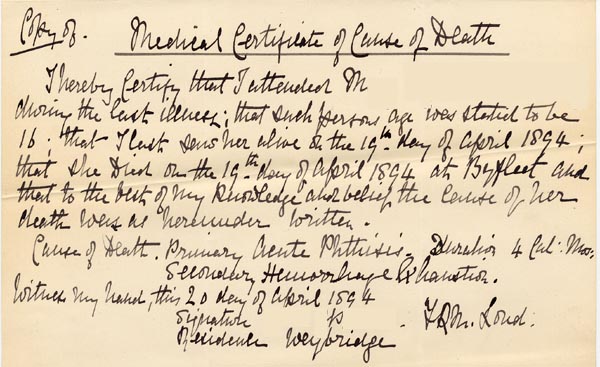 Copy of. Medical Certificate of Cause of Death
I hereby Certify that I attended M
during the last illness; that such persons age was stated to be
16. that I last saw her alive on the 19th day of April 1894;
that she Died on the 19th day of April 1894 at Byfleet and
that to the best of my knowledge and belief the cause of her
death was as hereunder written.
Cause of Death. Primary Acute Phthisis. Duration 4 Cal: Mos.
Secondary Hemorrhage Exhaustion.
Witness my hand, this 20 day of April 1894
Signature
Residence Weybridge